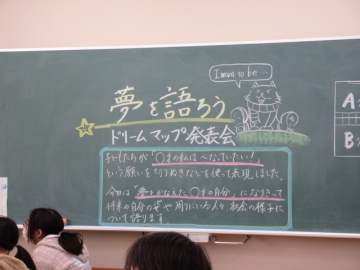 I wan to be...
夢を語ろう
ドリームマップ発表会
子どもたちが「〇才の私は〜なっていたい!」
という願いを「切りぬきなどを使って表現しました。
今日は「夢をかなえた〇才の自分」になりきって
将来の自分の姿や周りにいる人々、社会の様子に
ついて語ります。
A
B